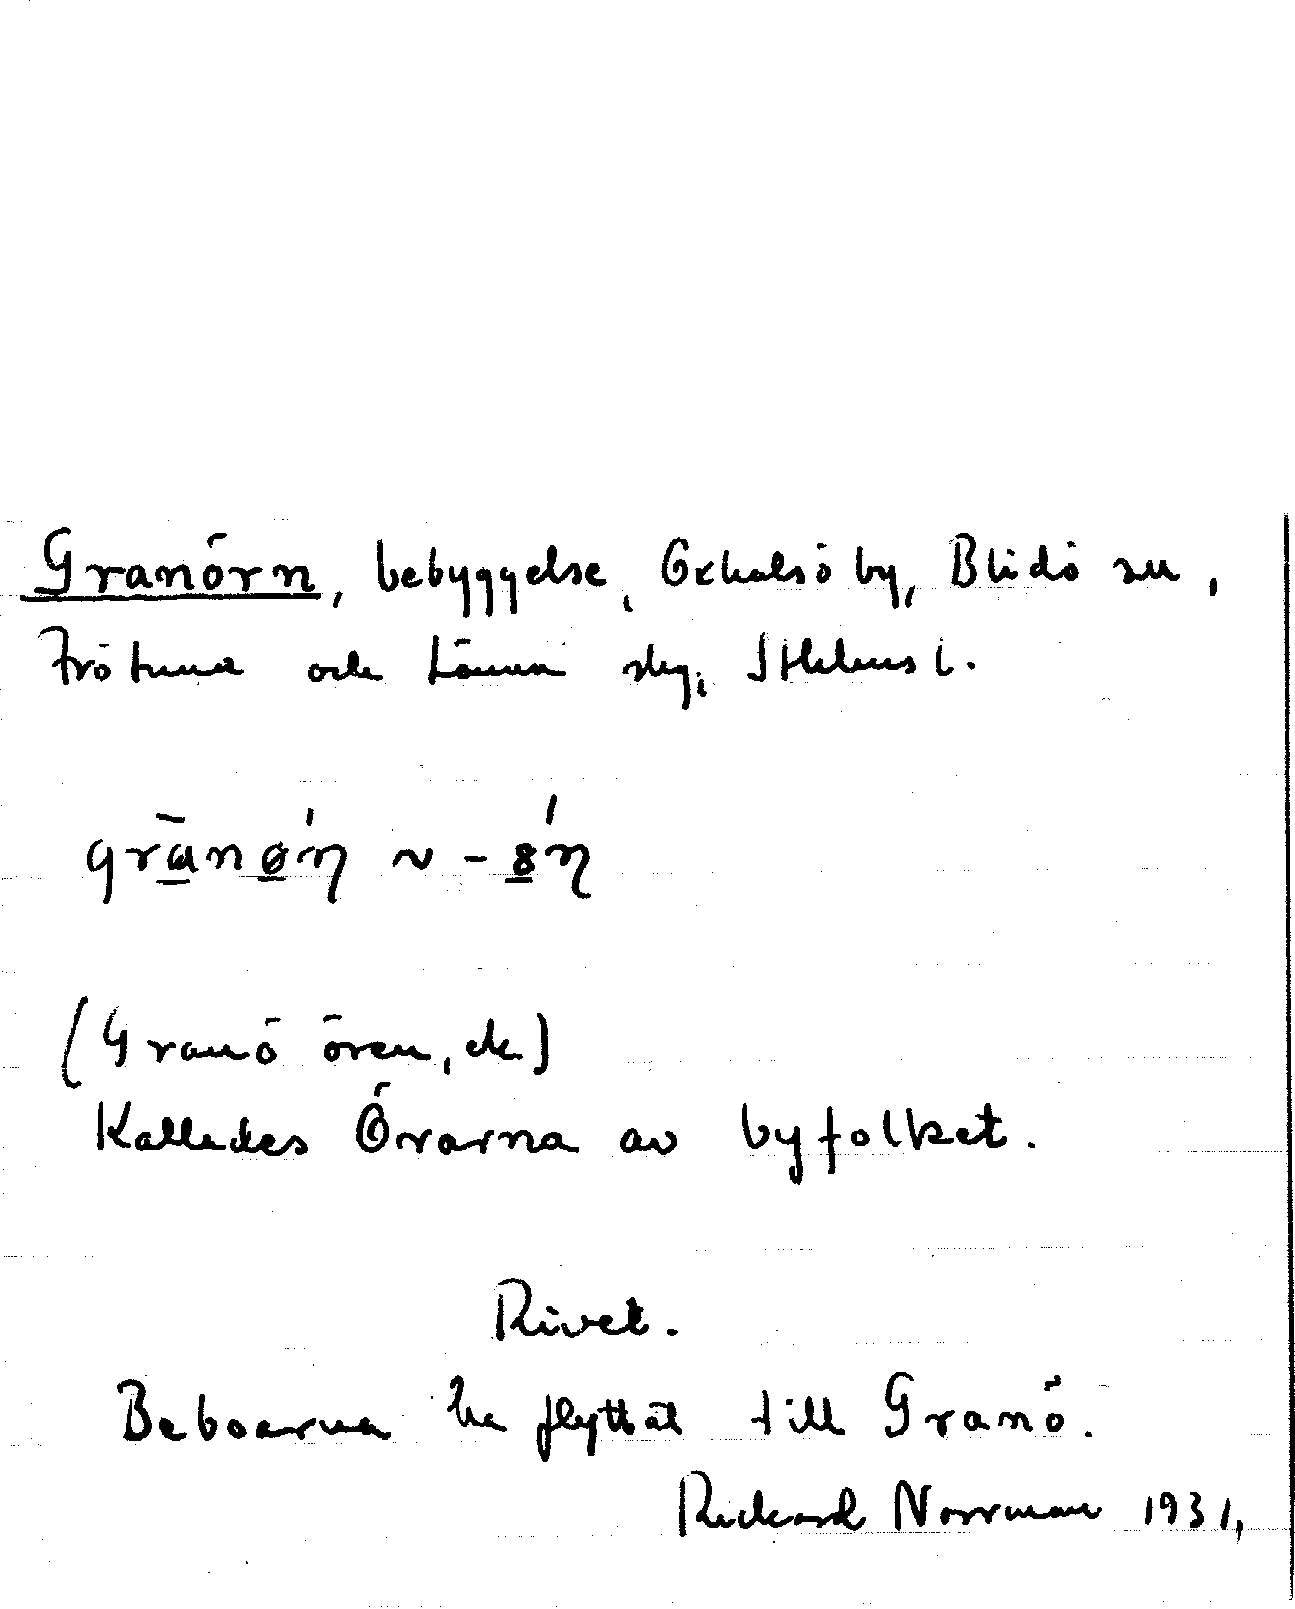 Granörn, bebyggelse, Oxhalsö by, Blidö sn,
Frötuna och Länna skg, Sthlms l.
(Granö ören, ek)
Kallades Örarna av byfolket.
Rivet.
Beboarna ha flyttat till Granö.
Rickard Norrman 1931.